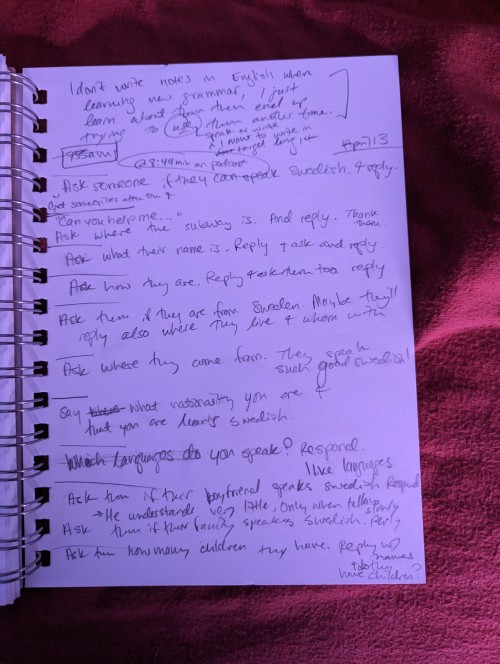 I don't write notes in English when
learning new grammar, I just
learn about them then end up
trying to use them another time.
speak or write
& I want to write in
target lang 1st
955am
28:44mn on podcast
April 13
Ask someone if they can speak Swedish. & reply.
Get someone's attention &
"Can you help me..."
Ask where the subway is. And reply. Thank
them.
Ask what their name is. Reply & ask and reply
Ask how they are. Reply & ask them too. reply
Ask them if they are from Sweden. Maybe they'll
reply also where they live & whom with
Ask where they come from. They speak
such good Swedish!
Say what nationality you are &
that you are learning Swedish.
Which languages do you speak? Respond.
I like languages
Ask them if their boyfriend speaks Swedish Respond
→ He understands very little, only when talk slowly
Ask them if their family speaking Swedish. Reply
Ask them how many children they have. Reply w/
names
& do they
have children?